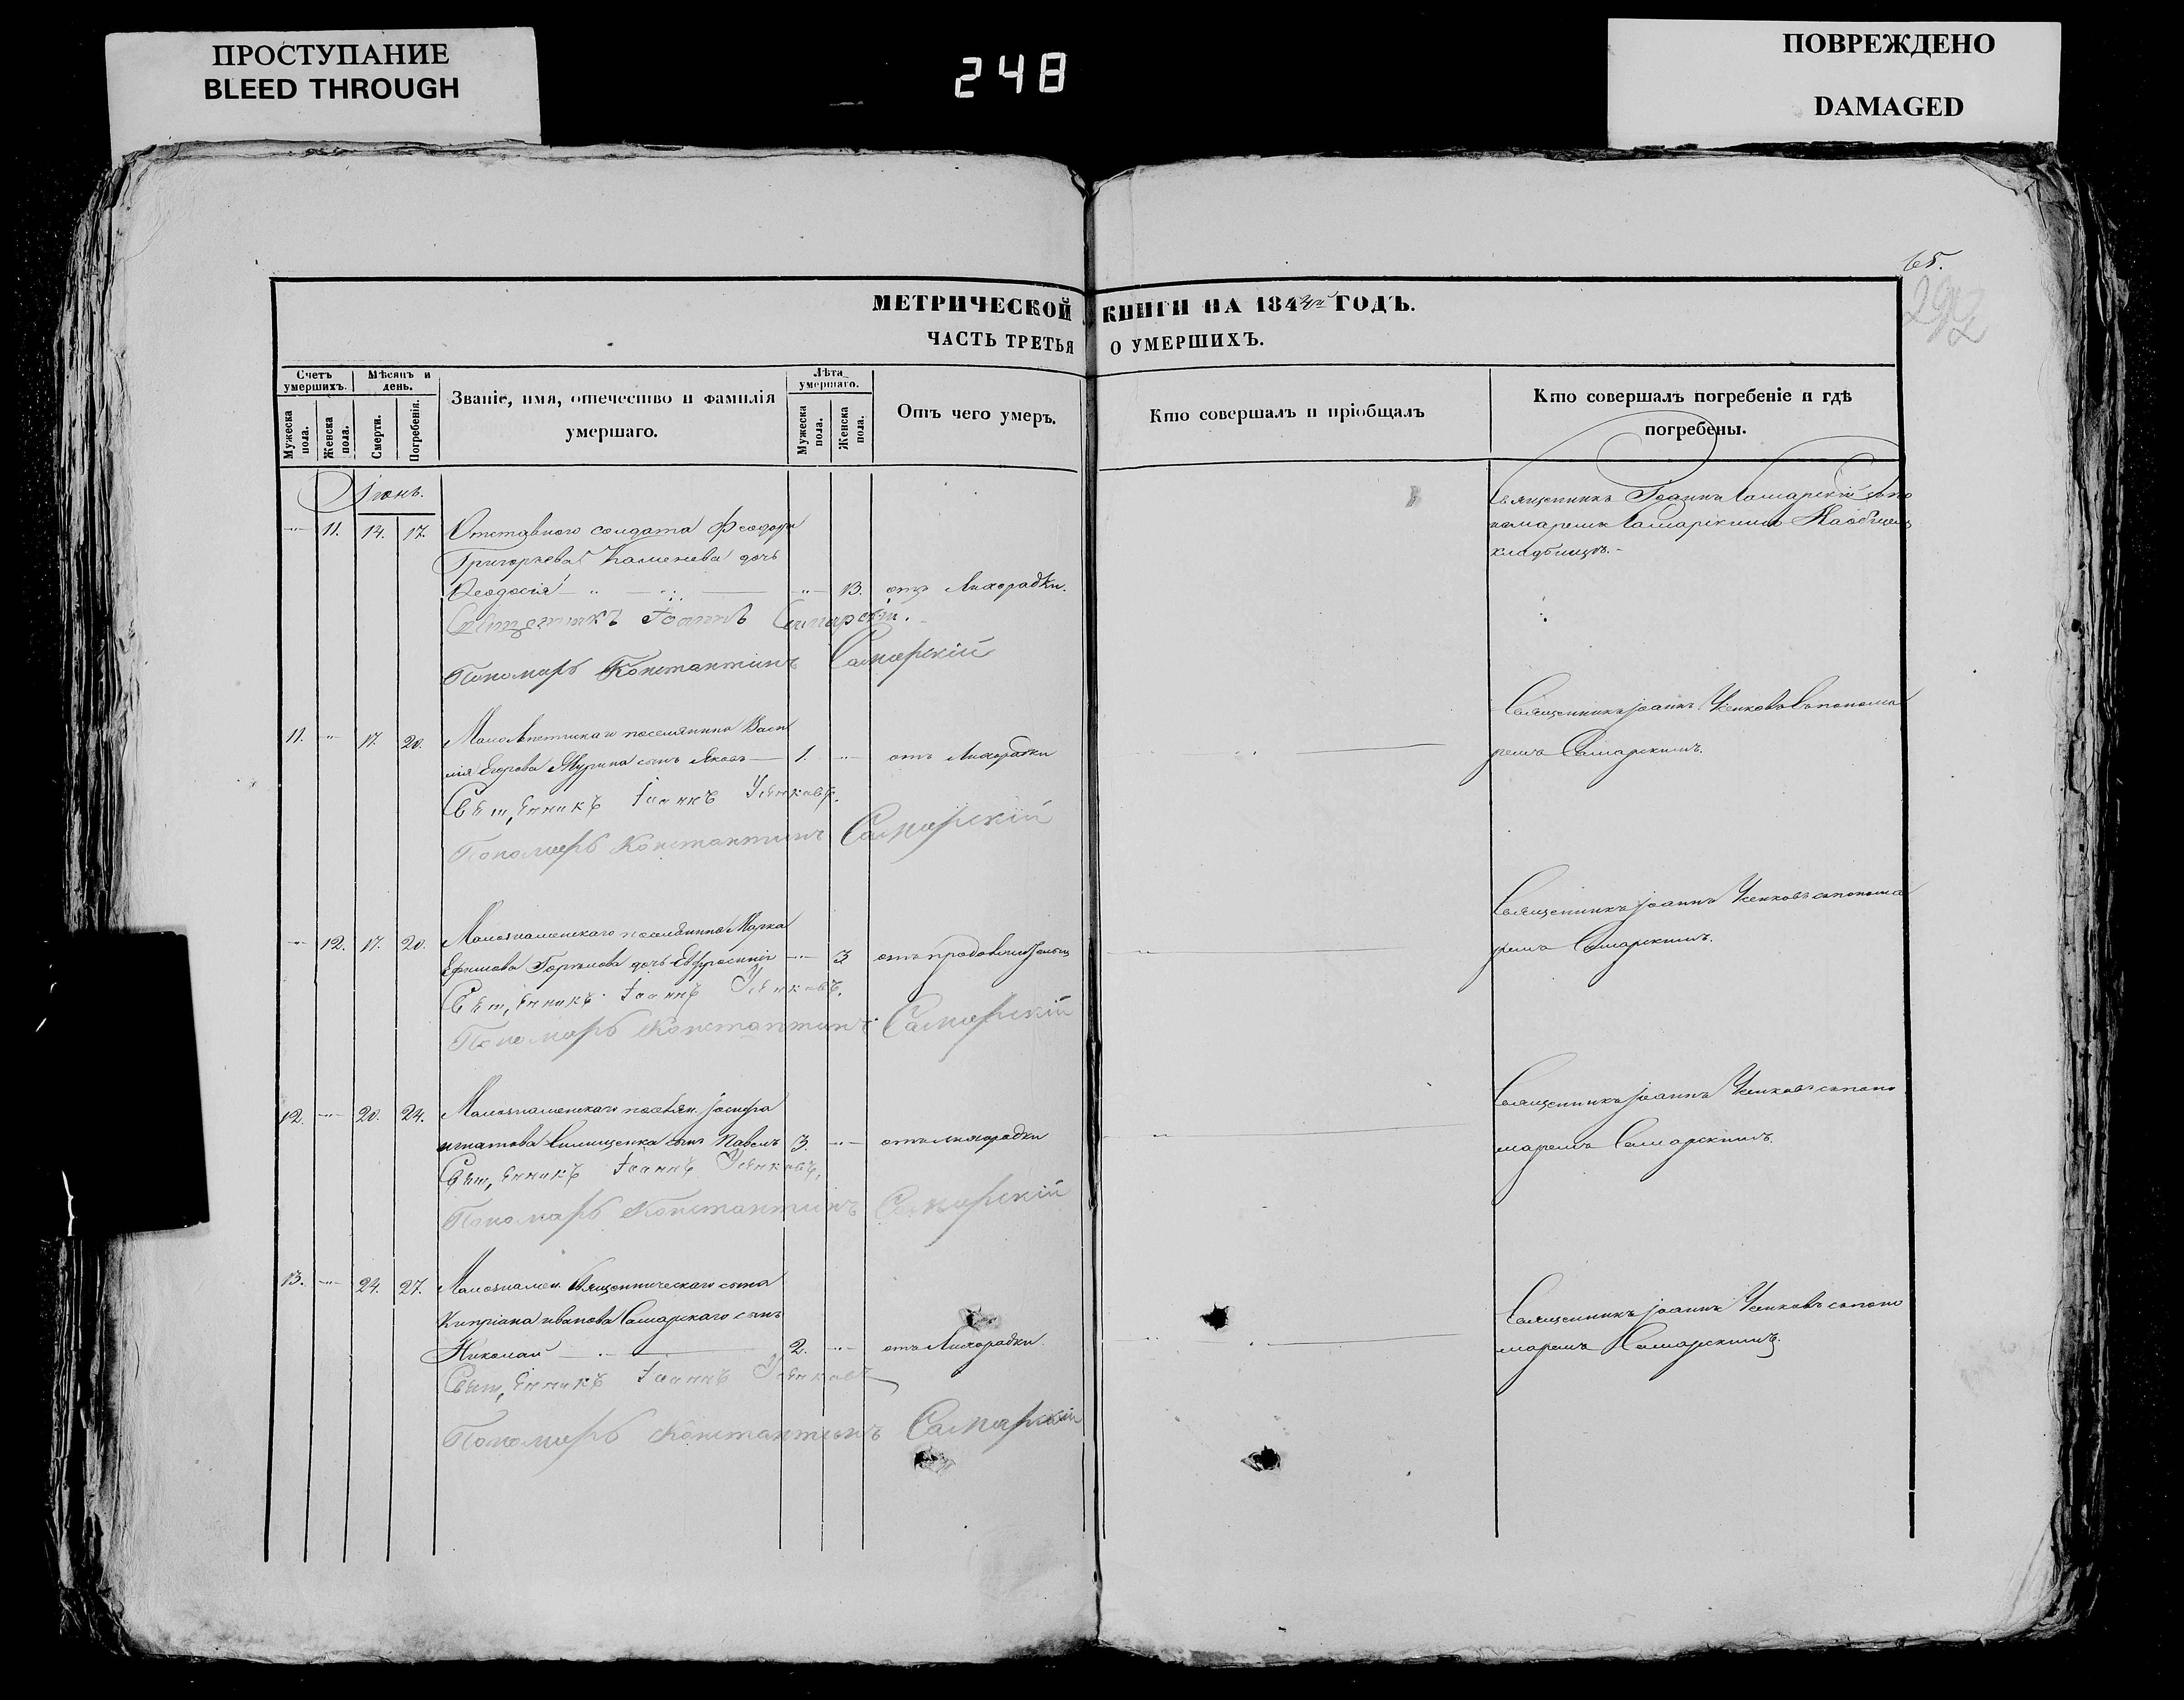 ПРОСТУПАНИЕ
BLEED THROUGH
248
ПОВРЕЖДЕНО
DAMAGED
65.
292
МЕТРИЧЕСКОЙ КНИГИ НА 184 ГОДЪ.
ЧАСТЬ ТРЕТЬЯ О УМЕРШИХЪ.
Счетъ умершихъ.
Мѣсяцъ и день.
Званіе, имя, отечество и фамилія умершаго.
Лѣта умершаго.
Отъ чего умеръ.
Кто совершалъ и пріобщалъ
Кто совершалъ погребеніе и гдѣ погребены.
Мужеска пола.
Женска пола.
Смерти.
Погребенія.
Мужеска пола.
Женска пола.
Іюнь.
11. 14. 17. Отставного солдата Феодора
Григорьева Каменева дочь
Феодосія 13. отъ Лихорадки.
Священникъ Іоаннъ Самарскій съ по
номаремъ Самарскимъ На общемъ
кладбищѣ.
Священникъ Іоаннъ Самарскій.
Пономарь Константинъ Самарскій
11. 17. 20. поселянина Васи
лія Егорова сынъ Яковъ 1. отъ Лихорадки
Священникъ Іоаннъ Усенковъ съ понома
ремъ Самарскимъ.
Священникъ Іоаннъ Усенковъ.
Пономарь Константинъ Самарскій
12. 17. 20. Малознаменскаго поселянина Марка
Ефимова дочь Евфросинія 3
Священникъ Іоаннъ Усенковъ съ понома
ремъ Самарскимъ.
Священникъ Іоаннъ Усенковъ.
Пономарь Константинъ Самарскій
12. 20. 24. Малознаменскаго поселян. Іосифа
игнатова сынъ Павелъ 3. отъ лихорадки
Священникъ Іоаннъ Усенковъ съ поно
маремъ Самарскимъ.
Священникъ Іоаннъ Усенковъ.
Пономарь Константинъ Самарскій
13. 24. 27. Малознамен. Священническаго сына
Кипріана иванова Самарскаго сынъ
Николай 2. отъ Лихорадки.
Священникъ Іоаннъ Усенковъ съ поно
маремъ Самарскимъ.
Священникъ Іоаннъ Усенковъ
Пономарь Константинъ Самарскій